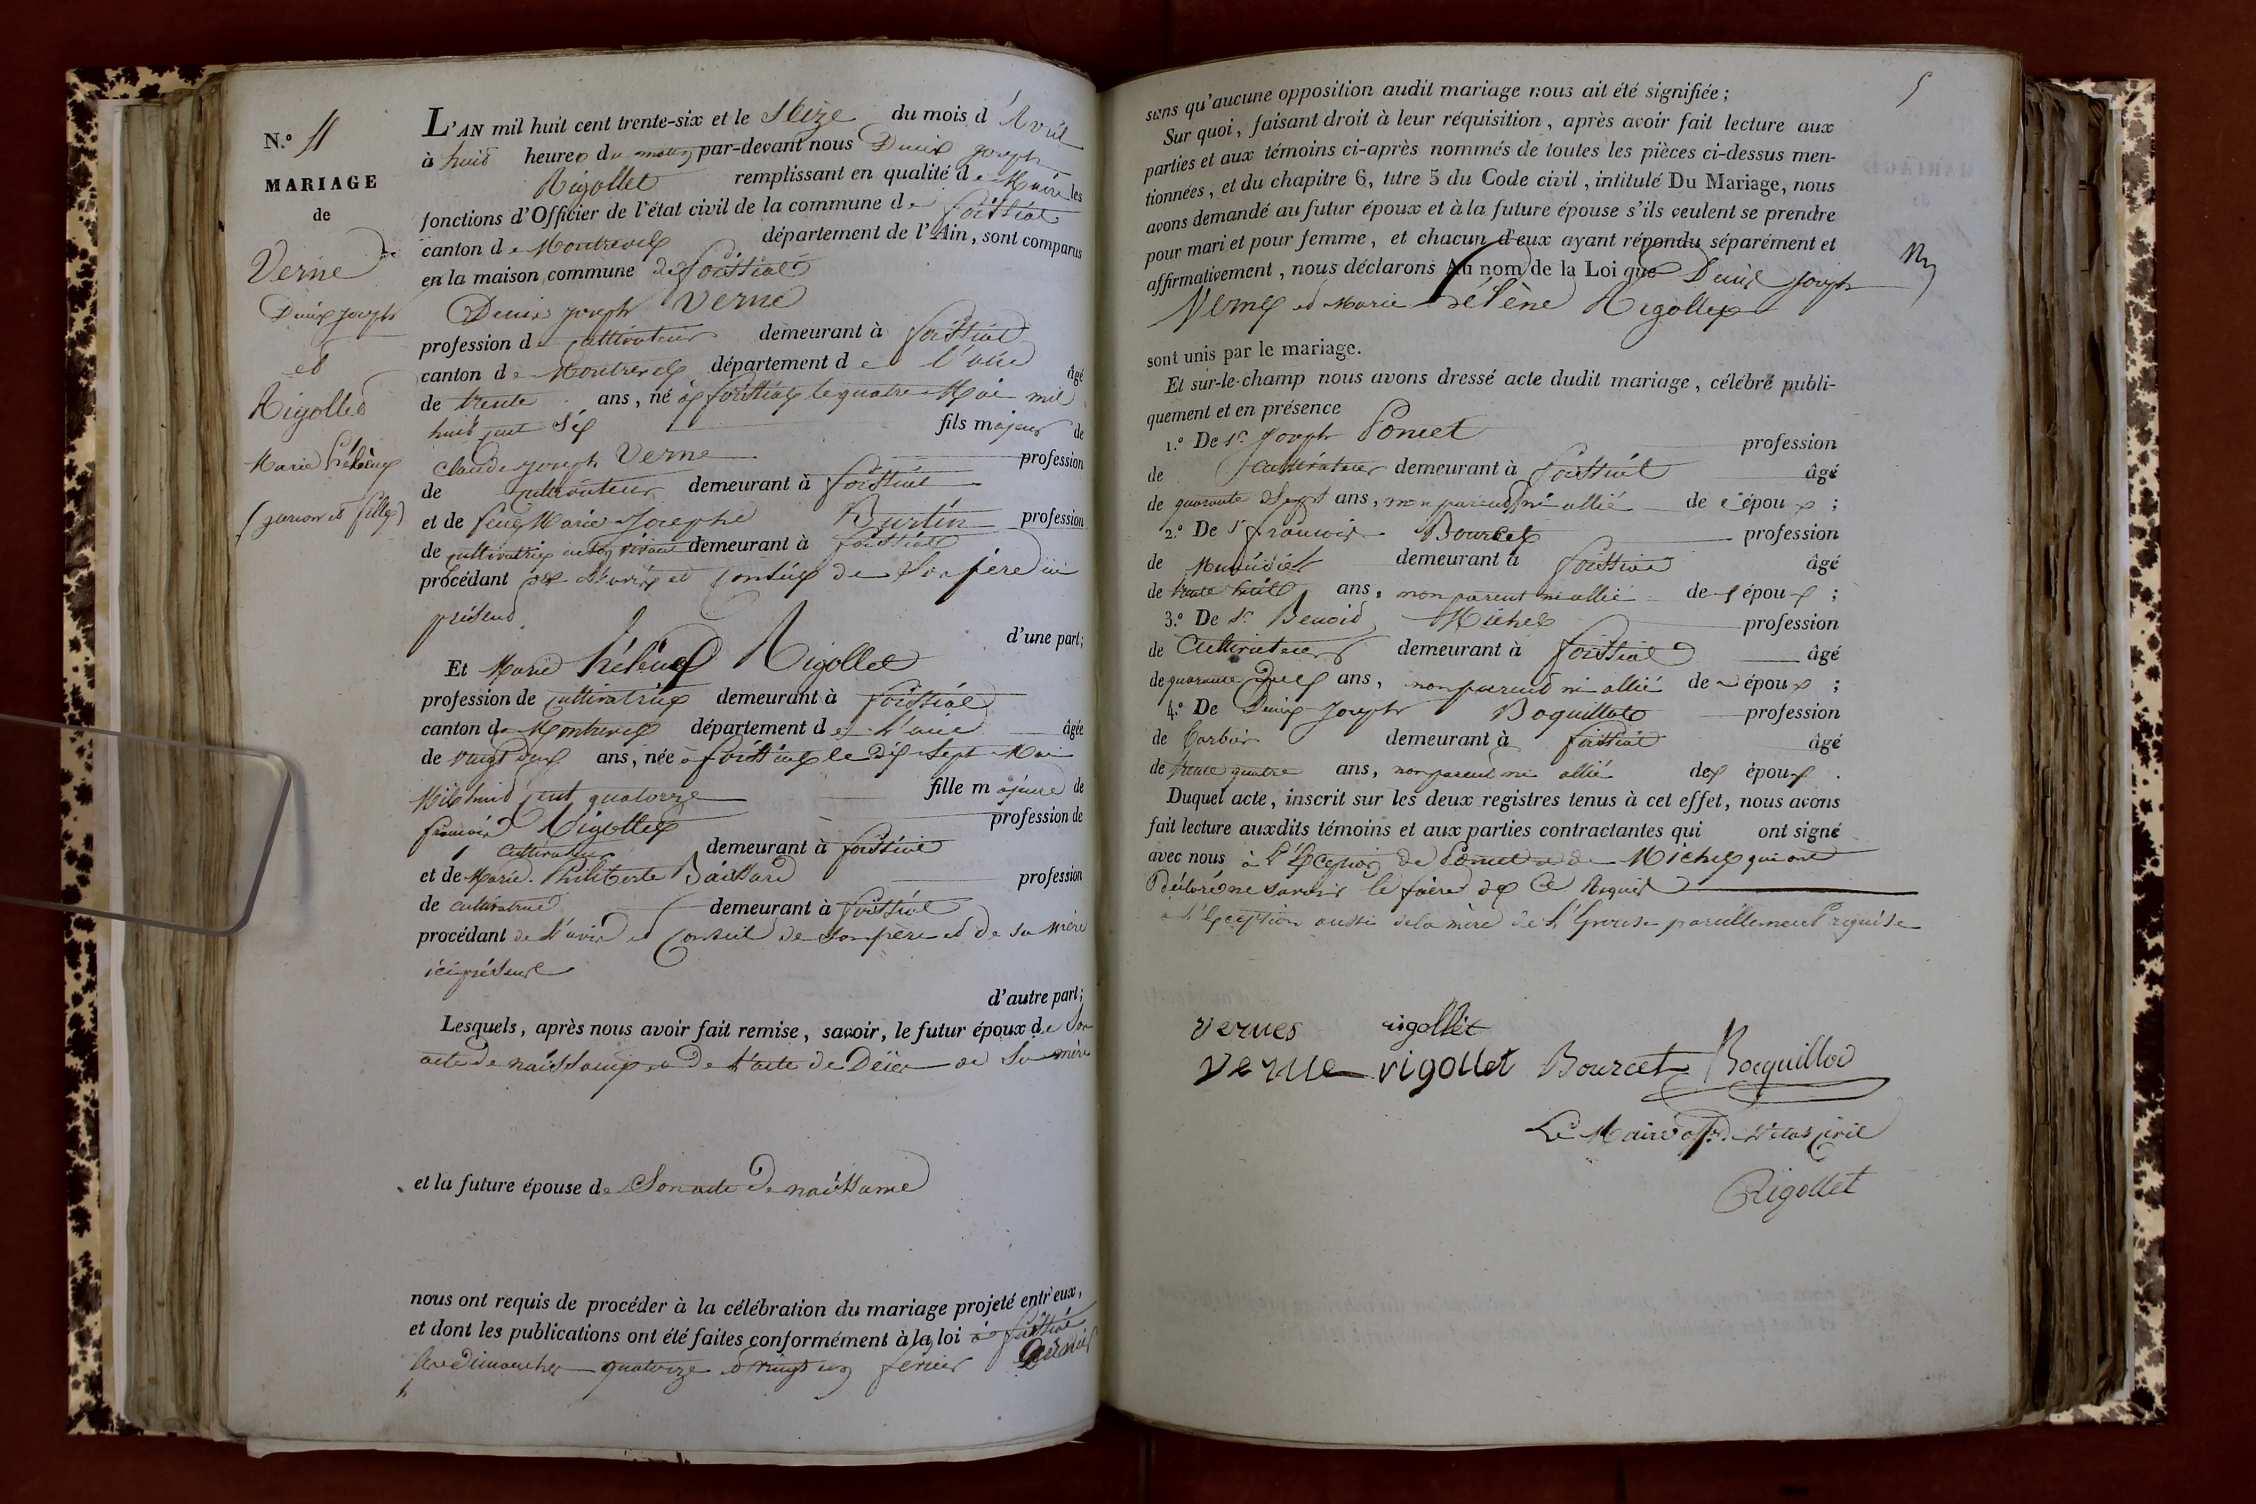 N.o 11
MARIAGE
de
Verne
Denis Joseph
et
Rigollet
Marie hélène
(garçon et fille)
L'AN mil huit cent trente-six et le Seize du mois d'Avril
à huit heures du matin par-devant nous Denis Joseph
Rigollet remplissant en qualité de Maire les
fonctions d'Officier de l'état civil de la commune de foissiat
canton de Montrevel département de l'Ain, sont comparus
en la maison commune de foissiat
Denis Joseph Verne
profession de cultivateur demeurant à foissiat
canton de Montrevel département de l'ain âgé
de trente ans, né à foissiat le quatre Mai mil
huit cent six fils majeur de
Claude Joseph Verne profession
de cultivateur demeurant à foissiat
et de feue Marie Josephe Burtin profession
de cultivatrice en son vivant demeurant à foissiat
procédant de l'avis et conseil de son père ici
présent
d'une part;
Et Marie hélène Rigollet
profession de cultivatrice demeurant à foissiat
canton de Montrevel département de l'ain âgée
de vingt deux ans, née à foissiat le dix Sept Mai
Mil huit cent quatorze fille majeure de
françois Rigollet profession de
cultivateur demeurant à foissiat
et de Marie Philiberte Baissard profession
de cultivatrice demeurant à foissiat
procédant de l'avis et conseil de son père et de sa mère
ici présents
d'autre part;
Lesquels, après nous avoir fait remise, savoir, le futur époux de son
acte de naissance et de l'acte de Décès de sa mère
et la future épouse de Son acte de naissance
nous ont requis de procéder à la célébration du mariage projeté entr'eux,
et dont les publications ont été faites conformément à la loi à foissiat
les dimanches quatorze et vingt un fevrier dernier
5
sans qu'aucune opposition audit mariage nous ait été signifiée;
Sur quoi, faisant droit à leur réquisition, après avoir fait lecture aux
parties et aux témoins ci-après nommés de toutes les pièces ci-dessus men-
tionnées, et du chapitre 6, titre 5 du Code civil, intitulé Du Mariage, nous
avons demandé au futur époux et à la future épouse s'ils veulent se prendre
pour mari et pour femme, et chacun d'eux ayant répondu séparément et
affirmativement, nous déclarons Au nom de la Loi que Denis Joseph
Verne et Marie hélène Rigollet
sont unis par le mariage.
Et sur-le-champ nous avons dressé acte dudit mariage, célébré publi-
quement et en présence
1.o De Sr. Joseph Poncet profession
de Cultivateur demeurant à foissiat âgé
de quarante Sept ans, non parent ni allié de l'époux;
2.o De Sr françois Bourcet profession
de Menuisier demeurant à foissiat âgé
de trente huit ans, non parent ni allié de l'époux;
3.o De Sr. Benoit Michel profession
de Cultivateur demeurant à foissiat âgé
de quarante Deux ans, non parent ni allié de époux;
4.o De Denis Joseph Boquillot profession
de demeurant à foissiat âgé
de trente quatre ans, non parent ni allié des époux.
Duquel acte, inscrit sur les deux registres tenus à cet effet, nous avons
fait lecture auxdits témoins et aux parties contractantes qui ont signé
avec nous à l'Exception de Poncet et de Michel qui ont
Déclaré ne savoir le faire de ce Requis
à l'Exception aussi de la mère de l'Epouse pareillement requise
vernes rigollet
verne rigollet Bourcet Bocquillod
Le Maire off. de l'état civil
Rigollet